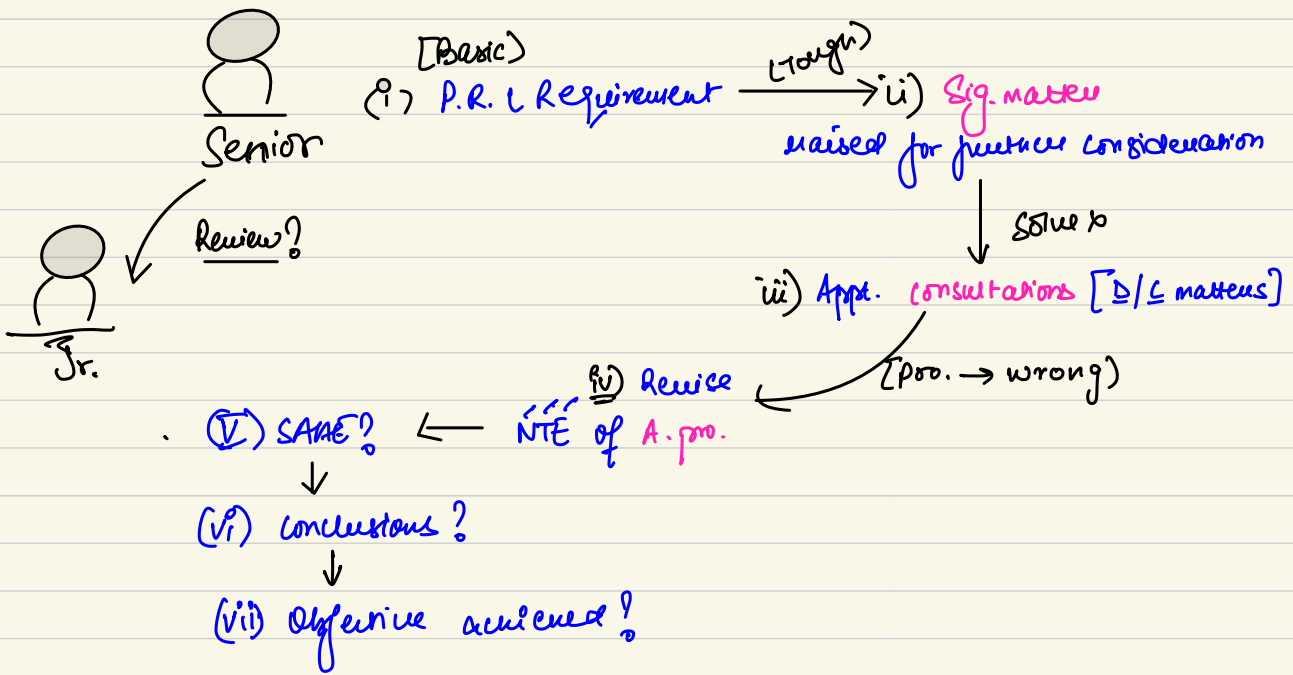 [Basic]
(i) P.R. & Requirement
(Tough)
ii) Sig. matter
raised for further consideration
Senior
Review?
Solve x
iii) Appt. consultations [D/C matters]
Jr.
[Pro. → wrong)
iv) Revise
NTE of A. pro.
(V) SAAE?
(vi) conclusions?
(vii) Objective achieved?